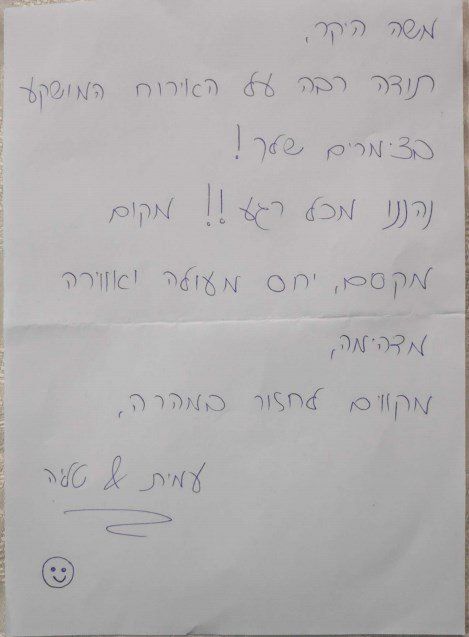 משה היקר,
תודה רבה על האירוח המושקע
בצימרים שלך!
נהננו מכל רגע!! מקום
מקסם, יחס מעולה ואווירה
מדהימה,
מקווים לחזור במהרה,
עמית & טליה